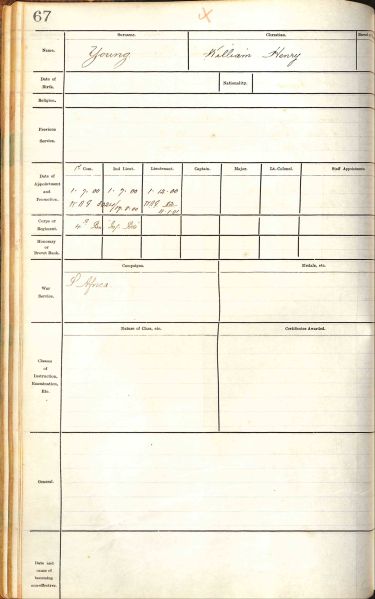 67
Surname. Christian.
Name. Young William Henry
Date of Birth. Nationality.
Religion.
Previous Service.
1st Com. 2nd Lieut. Lieutenant. Captain. Major. Lt.-Colonel. Staff Appointments
Date of Appointment and Promotion.
1. 7. 00 1. 7. 00 1. 12. 00
Corps or Regiment. 4th
Honorary or Brevet Rank.
Campaigns. Medals, etc.
War Service. S. Africa
Nature of Class, etc. Certificates Awarded.
Classes of Instruction, Examination, Etc.
General.
Date and cause of becoming non-effective.